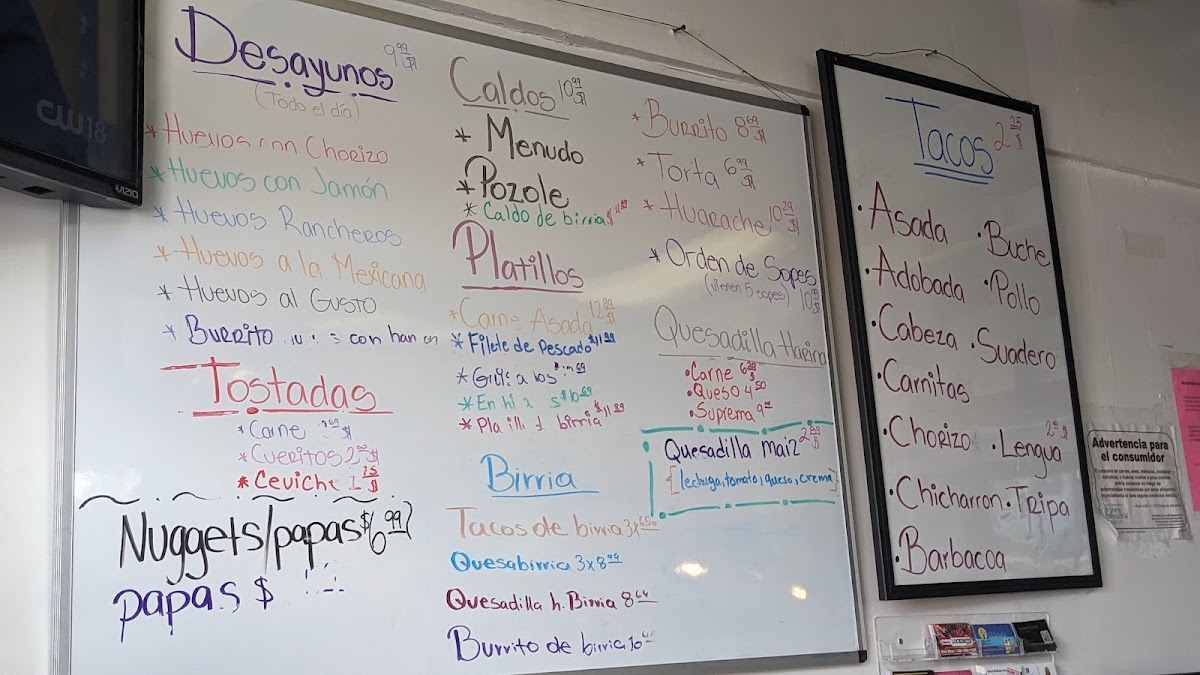 CW18
VIZIO
Desayunos 9.99 $
(Todo el día)
* Huevos con Chorizo
* Huevos con Jamón
* Huevos Rancheros
* Huevos a la Mexicana
* Huevos al Gusto
* Burrito con
Tostadas
* Carne
* Cueritos
* Ceviche
Nuggets/papas $6.99
papas $
Caldos 10.99 $
* Menudo
* Pozole
* Caldo de birria
Platillos
* Carne Asada
* Filete de Pescado
* Platillo birria
Birria
Tacos de birria 3x
Quesabirria 3x8
Quesadilla h. Birria 8
Burrito de birria
* Burrito 8
* Torta 6.99 $
* Huarache
* Orden de Sopes
(vienen 5 sopes)
Quesadilla Harina
• Carne
• Queso 4.50
• Suprema 9
Quesadilla maiz
[lechuga, tomato, queso, crema]
Tacos 2.25 $
• Asada
• Adobada
• Cabeza
• Carnitas
• Chorizo
• Chicharron
• Barbacoa
• Buche
• Pollo
• Suadero
• Lengua
• Tripa
Advertencia para
el consumidor